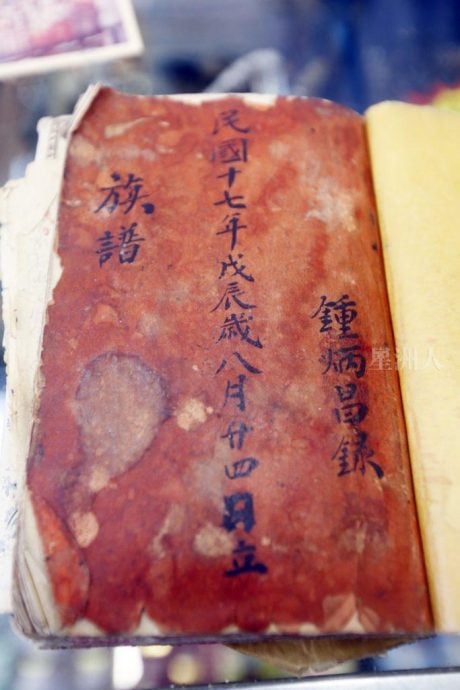 鍾炳昌録
民國十七年戊辰歲八月廿四日立
族譜
星洲人